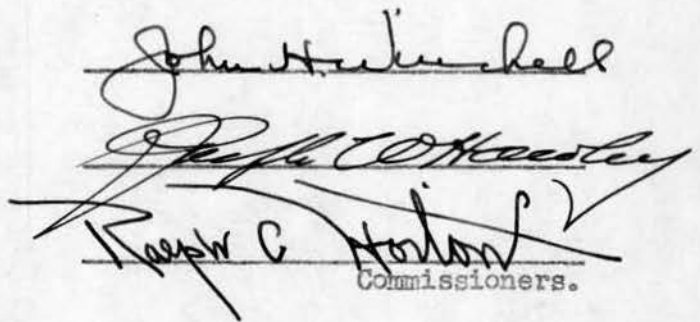 John H. Winchell
Joseph W Hawley
Ralph C Horton
Commissioners.